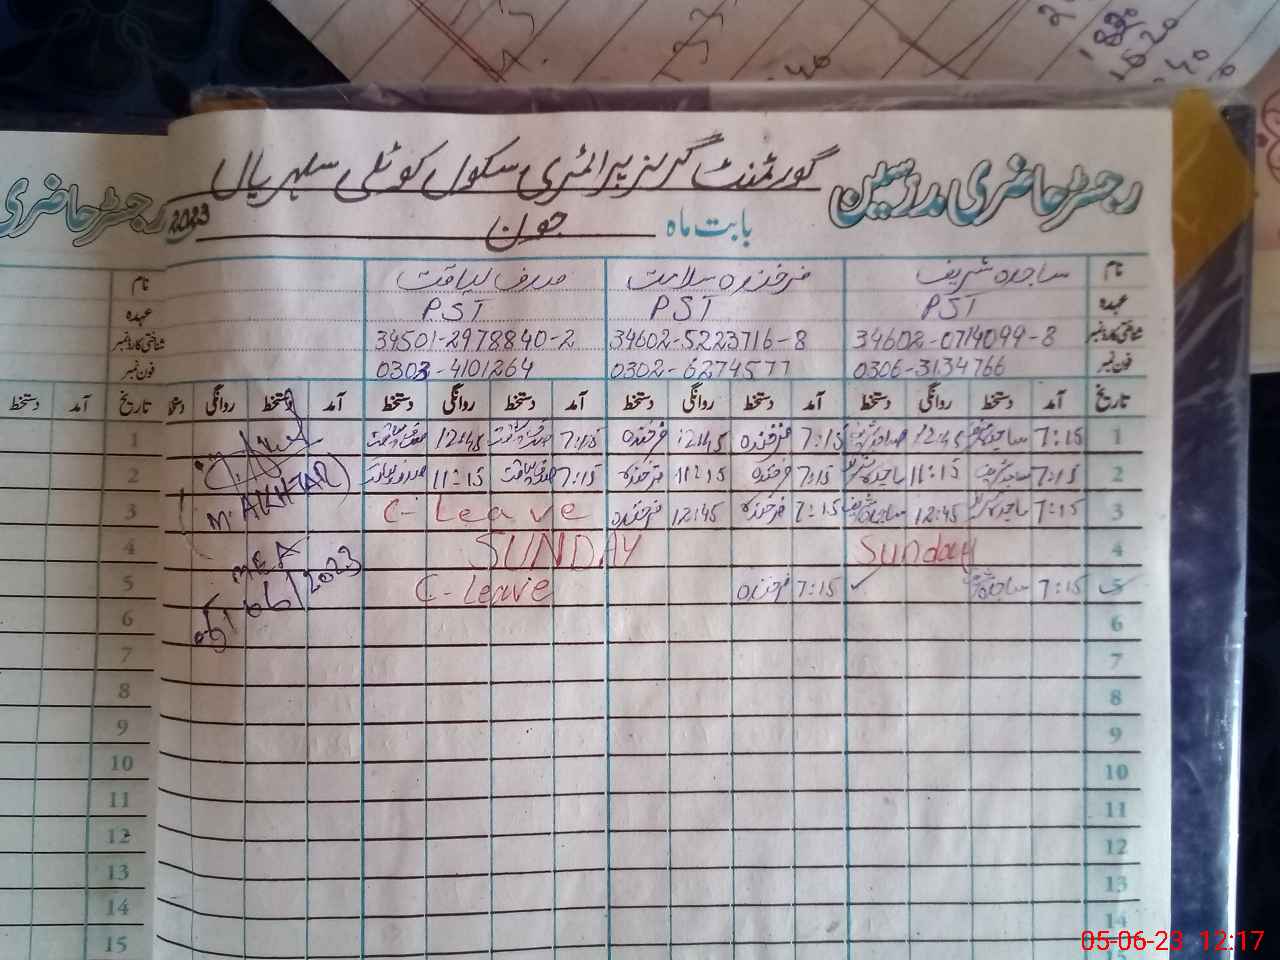 رجسٹر حاضری مدرسین گورنمنٹ گرلز پرائمری سکول کوٹلی سلہریال
بابت ماہ جون 2023
رجسٹر حاضری
نام ساجدہ شریف فرخندہ سلامت صدف لیاقت
عہدہ PST PST PST
شناختی کارڈ نمبر 34602-0714099-8 34602-5223716-8 34501-2978840-2
فون نمبر 0306-3134766 0302-6274577 0303-4101264
تاریخ آمد دستخط روانگی دستخط آمد دستخط روانگی دستخط آمد دستخط روانگی دستخط آمد دستخط روانگی دستخط
1 7:15 ساجدہ شریف 12:45 ساجدہ شریف 7:15 فرخندہ 12:45 فرخندہ 7:15 صدف لیاقت 12:45 صدف لیاقت
2 7:15 ساجدہ شریف 11:15 ساجدہ شریف 7:15 فرخندہ 11:15 فرخندہ 7:15 صدف لیاقت 11:15 صدف لیاقت
3 7:15 ساجدہ شریف 12:45 ساجدہ شریف 7:15 فرخندہ 12:45 فرخندہ C-Leave
4 Sunday SUNDAY
5 7:15 ساجدہ شریف 7:15 فرخندہ C-Leave
6
7
8
9
10
11
12
13
14
15
(M. AKHTAR)
MEA
05/06/2023
نام
عہدہ
شناختی کارڈ نمبر
فون نمبر
تاریخ آمد دستخط
1
2
3
4
5
6
7
8
9
10
11
12
13
14
15
1820
1620
40
40
05-06-23 12:17